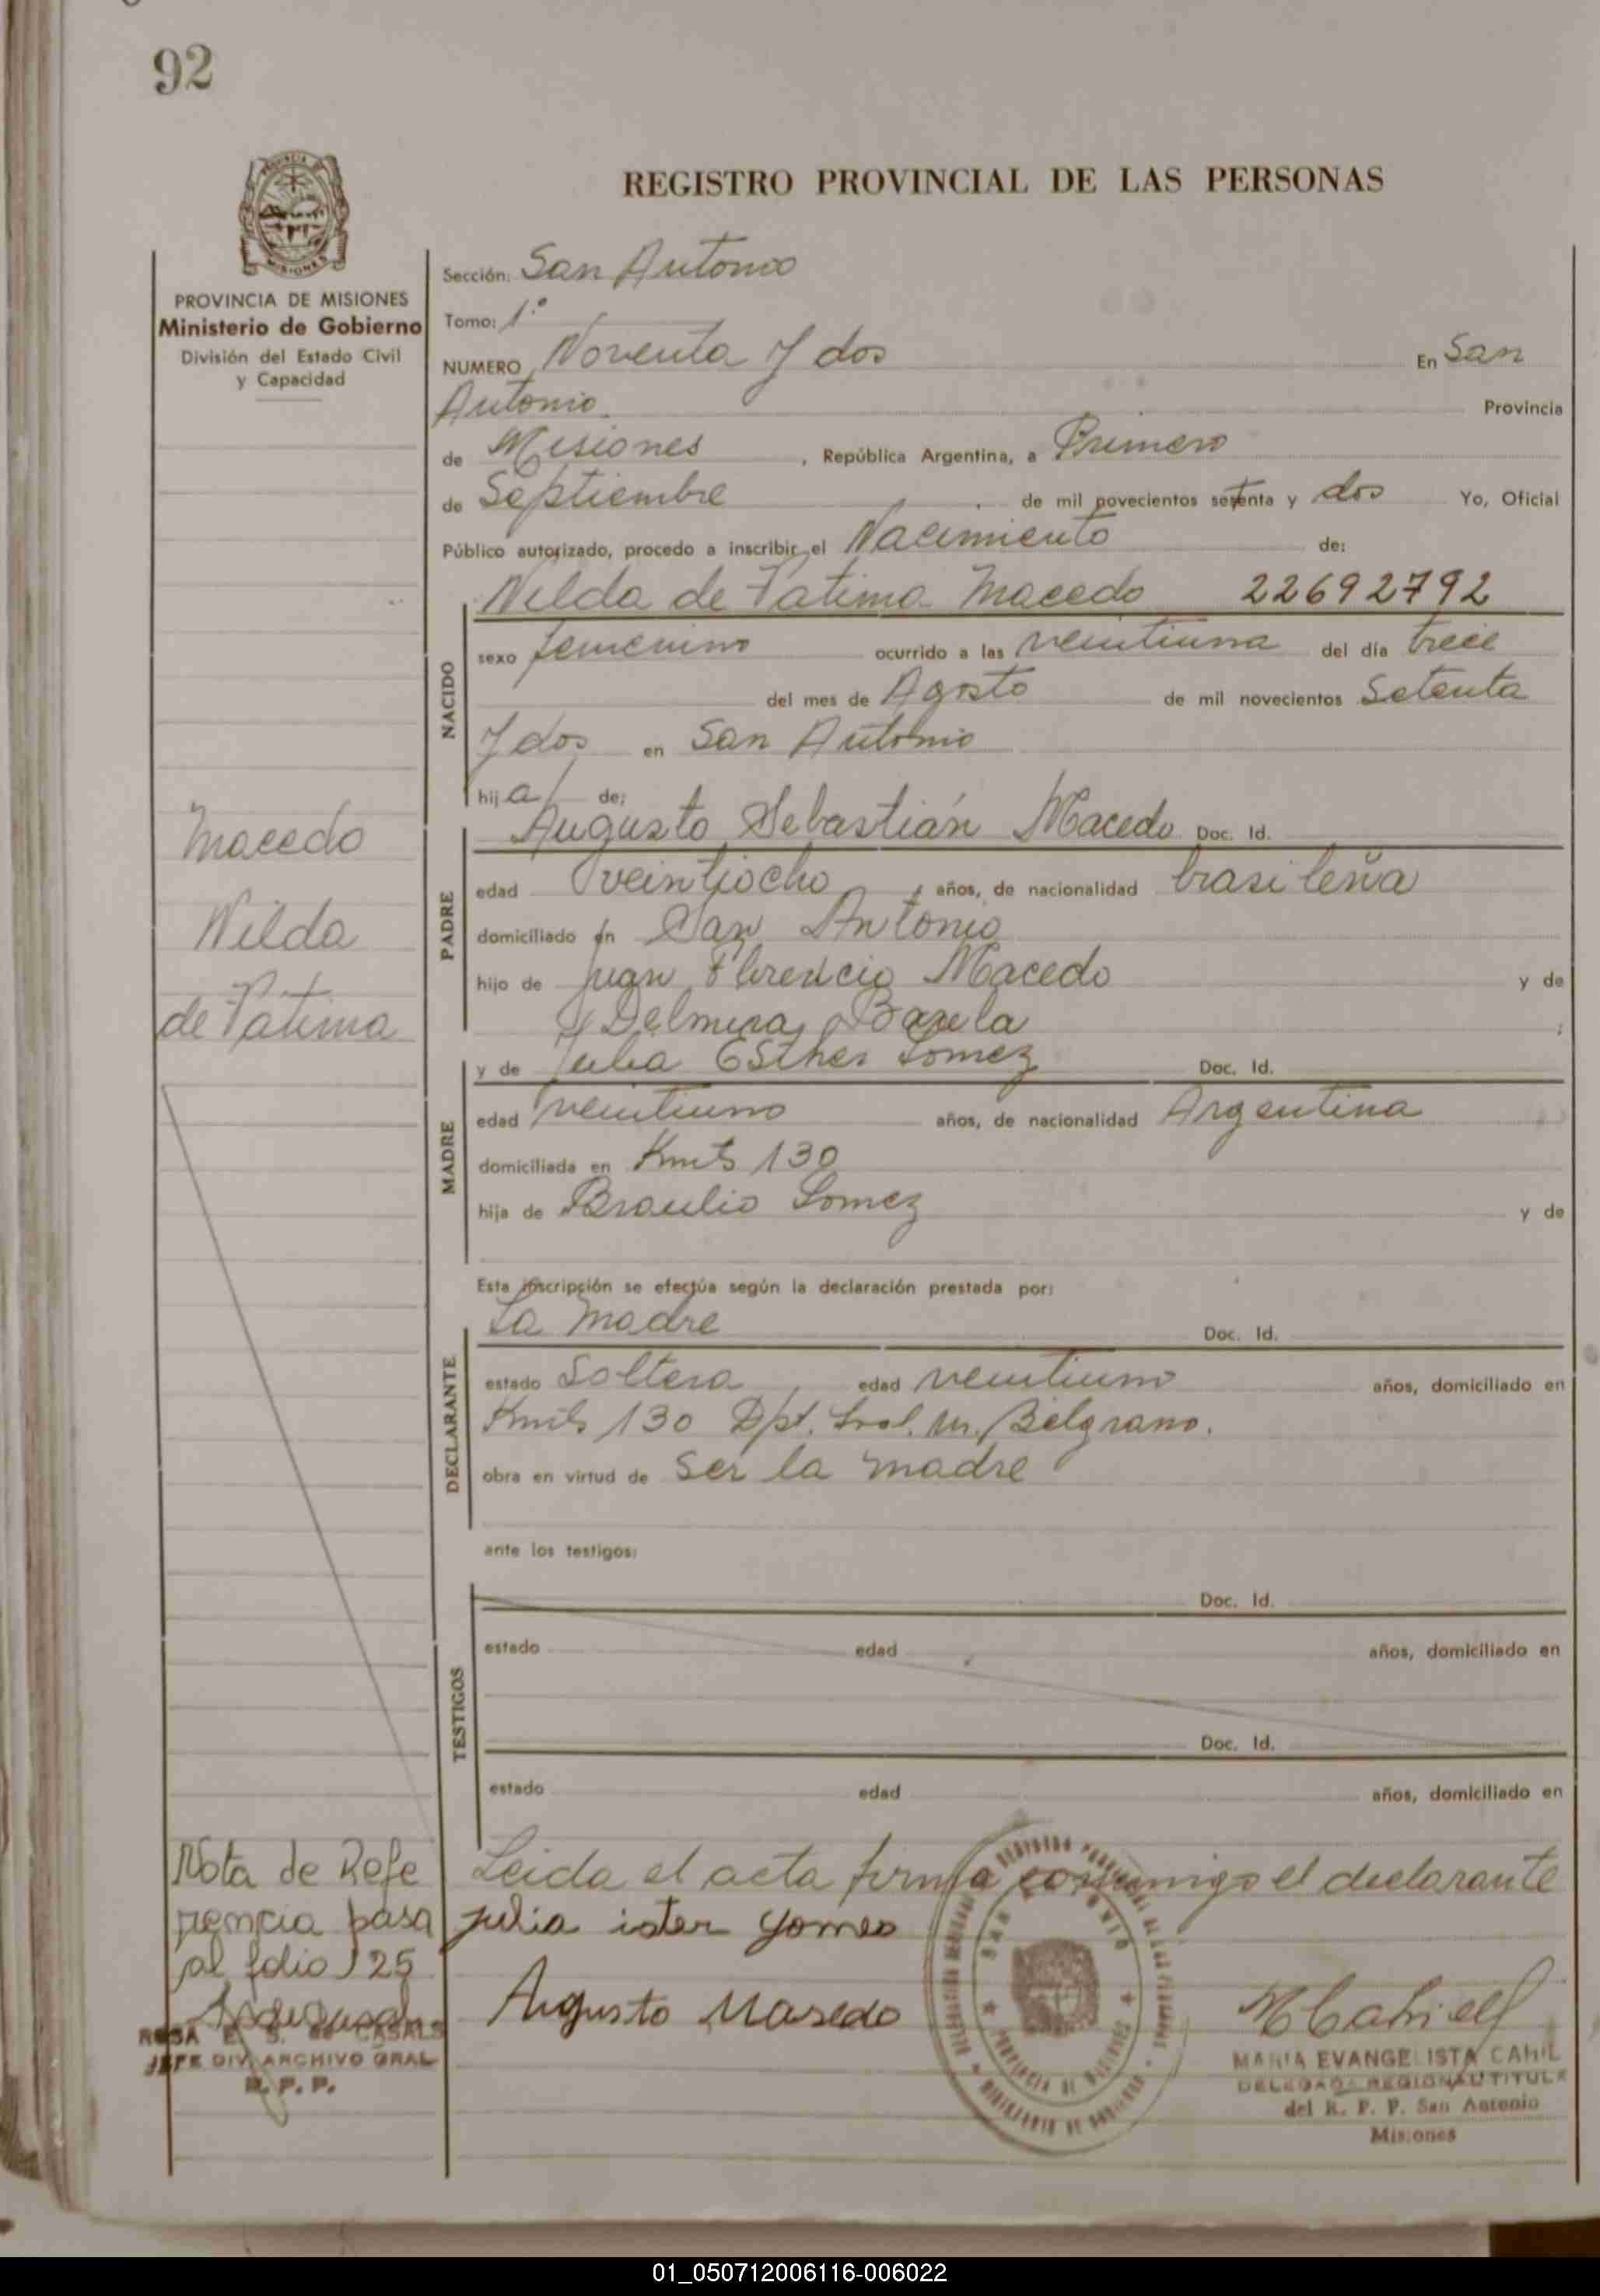 92
REGISTRO PROVINCIAL DE LAS PERSONAS
PROVINCIA DE MISIONES
Ministerio de Gobierno
División del Estado Civil
y Capacidad
Sección: San Antonio
Tomo: 1º
NUMERO Noventa y dos En San
Antonio Provincia
de Misiones, República Argentina, a Primero
de Septiembre de mil novecientos setenta y dos Yo, Oficial
Público autorizado, procedo a inscribir el Nacimiento de:
Nilda de Fatima Macedo 22692792
NACIDO
sexo femenino ocurrido a las veintiuna del día trece
del mes de Agosto de mil novecientos Setenta
y dos en San Antonio
hija de:
PADRE
Augusto Sebastián Macedo Doc. Id.
edad veintiocho años, de nacionalidad brasileña
domiciliado en San Antonio
hijo de Juan Florencio Macedo y de
Delmira ;
MADRE
y de Julia Esther Gomez Doc. Id.
edad veintiuno años, de nacionalidad Argentina
domiciliada en Kmts 130
hija de Braulio Gomez y de
Esta inscripción se efectúa según la declaración prestada por:
DECLARANTE
La madre Doc. Id.
estado Soltera edad veintiuno años, domiciliado en
Kmts 130 Dpt. Gral. M. Belgrano.
obra en virtud de ser la madre
ante los testigos:
TESTIGOS
Doc. Id.
estado edad años, domiciliado en
Doc. Id.
estado edad años, domiciliado en
Leida el acta firma conmigo el declarante
julia ister gomes
Augusto Masedo
Macedo
Nilda
de Fatima
Nota de Refe
rencia pasa
al folio 125
ROSA E. S. de CASALS
JEFE DIV. ARCHIVO GRAL
R. P. P.
MARIA EVANGELISTA CAHIL
DELEGADA REGIONAL TITULA
del R. P. P. San Antonio
Misiones
01_050712006116-006022